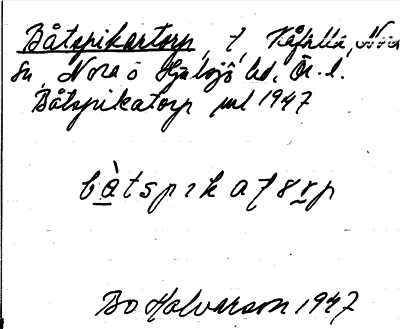 Båtspikartorp, t, Kåfalla, Nora
sn, Nora o Hjulsjö bd, Ör. l.
Båtspikatorp jul 1947
bàtspikatɵrp
Bo Halvarson 1947